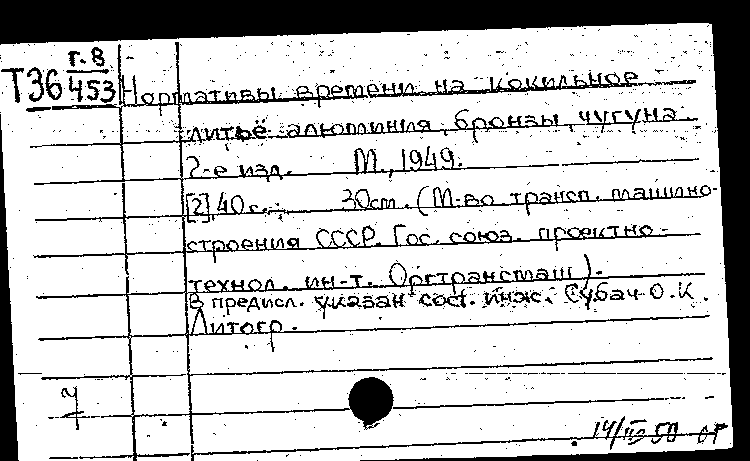 Т36 г.8
453
Нормативы времени на кокильное
литьё алюминия, бронзы, чугуна.
2-е изд. М., 1949.
[2], 40 с. 30см. (М-во трансп. машино-
строения СССР. Гос. союз. проектно-
технол. ин-т. Оргтрансмаш).
В предисл. указан сост. инж. Субач О.К.
Литогр.
Ч
14/III 50